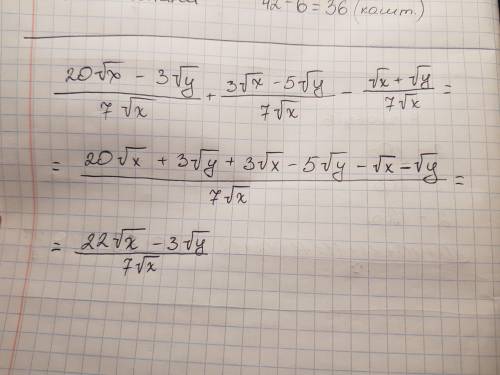 42-6=36 (кошт.)
(20√x - 3√y)/(7√x) + (3√x - 5√y)/(7√x) - (√x + √y)/(7√x) =
= (20√x + 3√y + 3√x - 5√y - √x - √y)/(7√x) =
= (22√x - 3√y)/(7√x)